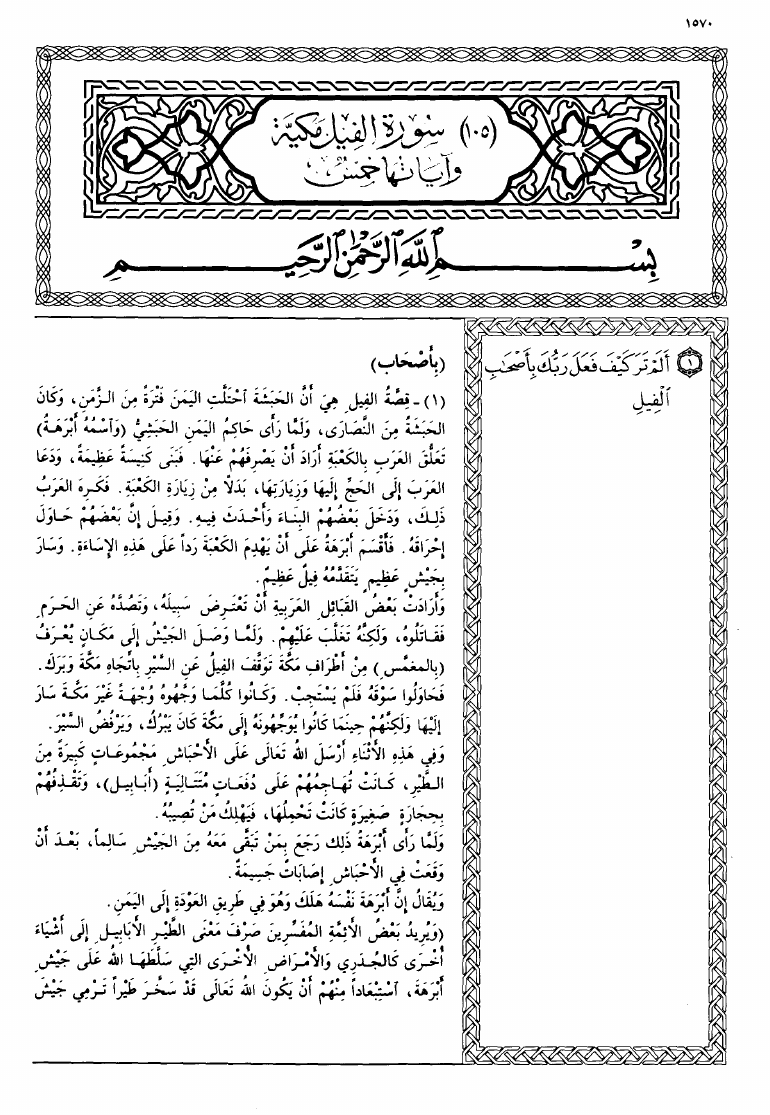 ١٥٧٠
(١٠٥) سورة الفيل مكية
وآياتها خمس
بِسْمِ ٱللَّهِ ٱلرَّحْمٰنِ ٱلرَّحِيمِ
١ أَلَمْ تَرَ كَيْفَ فَعَلَ رَبُّكَ بِأَصْحَٰبِ
ٱلْفِيلِ
(بِأَصْحَابِ)
(١) - قِصَّةُ الفِيلِ هِيَ أَنَّ الحَبَشَةَ ٱحْتَلَّتِ اليَمَنَ فَتْرَةً مِنَ الزَّمَنِ، وَكَانَ
الحَبَشَةُ مِنَ النَّصَارَى، وَلَمَّا رَأَى حَاكِمُ اليَمَنِ الحَبَشِيُّ (وَٱسْمُهُ أَبْرَهَةُ)
تَعَلُّقَ العَرَبِ بِالكَعْبَةِ أَرَادَ أَنْ يَصْرِفَهُمْ عَنْهَا. فَبَنَى كَنِيسَةً عَظِيمَةً، وَدَعَا
العَرَبَ إِلَى الحَجِّ إِلَيهَا وَزِيَارَتِهَا، بَدَلاً مِنْ زِيَارَةِ الكَعْبَةِ. فَكَرِهَ العَرَبُ
ذَلِكَ، وَدَخَلَ بَعْضُهُمُ البِنَاءَ وَأَحْدَثَ فِيهِ. وَقِيلَ إِنَّ بَعْضَهُمْ حَاوَلَ
إِحْرَاقَهُ. فَأَقْسَمَ أَبْرَهَةُ عَلَى أَنْ يَهْدِمَ الكَعْبَةَ رَداً عَلَى هَذِهِ الإِسَاءَةِ. وَسَارَ
بِجَيْشٍ عَظِيمٍ يَتَقَدَّمُهُ فِيلٌ عَظِيمٌ.
وَأَرَادَتْ بَعْضُ القَبَائِلِ العَرَبِيةِ أَنْ تَعْتَرِضَ سَبِيلَهُ، وَتَصُدَّهُ عَنِ الحَرَمِ
فَقَاتَلُوهُ، وَلَكِنَّهُ تَغَلَّبَ عَلَيْهِمْ. وَلَمَّا وَصَلَ الجَيْشُ إِلَى مَكَانٍ يُعْرَفُ
(بِالمغَمَّسِ) مِنْ أَطْرَافِ مَكَّةَ تَوَقَّفَ الفِيلُ عَنِ السَّيْرِ بِٱتِّجَاهِ مَكَّةَ وَبَرَكَ.
فَحَاوَلُوا سَوْقَهُ فَلَمْ يَسْتَجِبْ. وَكَانُوا كُلَّمَا وَجَّهُوهُ وُجْهَةً غَيْرَ مَكَّةَ سَارَ
إِلَيْهَا وَلَكِنَّهُمْ حِينَمَا كَانُوا يُوَجِّهُونَهُ إِلَى مَكَّةَ كَانَ يَبْرُكُ، وَيَرْفُضُ السَّيْرَ.
وَفِي هَذِهِ الأَثْنَاءِ أَرْسَلَ اللهُ تَعَالَى عَلَى الأَحْبَاشِ مَجْمُوعَاتٍ كَبِيرَةً مِنَ
الطَّيْرِ، كَانَتْ تُهَاجِمُهُمْ عَلَى دُفَعَاتٍ مُتَتَالِيَةٍ (أَبَابِيلَ)، وَتَقْذِفُهُمْ
بِحِجَارَةٍ صَغِيرَةٍ كَانَتْ تَحْمِلُهَا، فَيَهْلِكُ مَنْ تُصِيبُهُ.
وَلَمَّا رَأَى أَبْرَهَةُ ذَلِكَ رَجَعَ بِمَنْ تَبَقَّى مَعَهُ مِنَ الجَيْشِ سَالِماً، بَعْدَ أَنْ
وَقَعَتْ فِي الأَحْبَاشِ إِصَابَاتٌ جَسِيمَةٌ.
وَيُقَالُ إِنَّ أَبْرَهَةَ نَفْسَهُ هَلَكَ وَهُوَ فِي طَرِيقِ العَوْدَةِ إِلَى اليَمَنِ.
(وَيُرِيدُ بَعْضُ الأَئِمَّةِ المُفَسِّرِينَ صَرْفَ مَعْنَى الطَّيْرِ الأَبَابِيلِ إِلَى أَشْيَاءَ
أُخْرَى كَالجُدَرِي وَالأَمْرَاضِ الأُخْرَى التِي سَلَّطَهَا اللهُ عَلَى جَيْشِ
أَبْرَهَةَ، ٱسْتِبْعَاداً مِنْهُمْ أَنْ يَكُونَ اللهُ تَعَالَى قَدْ سَخَّرَ طَيْراً تَرْمِي جَيْشَ